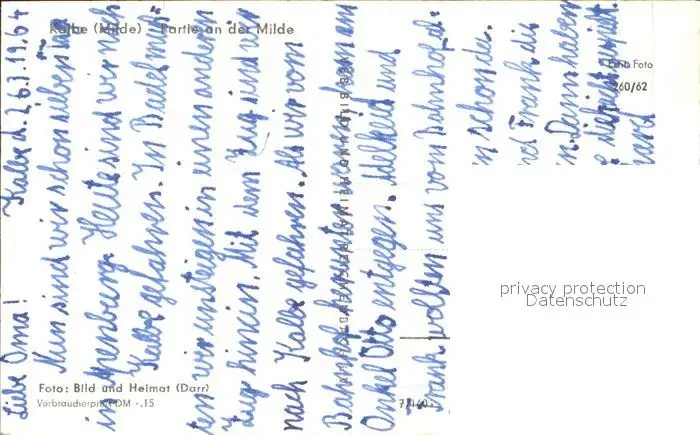 Kalbe (Milde) - Partie an der Milde
Echt Foto
260/62
Kalbe d. 26.7.1964
Liebe Oma!
Nun sind wir schon sieben
in Apenburg. Heute sind wir nach
Kalbe gefahren. In
ten wir umsteigen in einen anderen
Zug hinein. Mit dem Zug sind wir
nach Kalbe gefahren. Als wir vom
Bahnhof herunter waren kam
Onkel Otto entgegen. Adelheid und
Frank wollten uns vom Bahnhof
schon die
Frank die
Dann haben
sie gespielt.
VEB BILD UND HEIMAT REICHENBACH
Foto: Bild und Heimat (Darr)
Verbraucherpreis DM -,15
privacy protection
Datenschutz